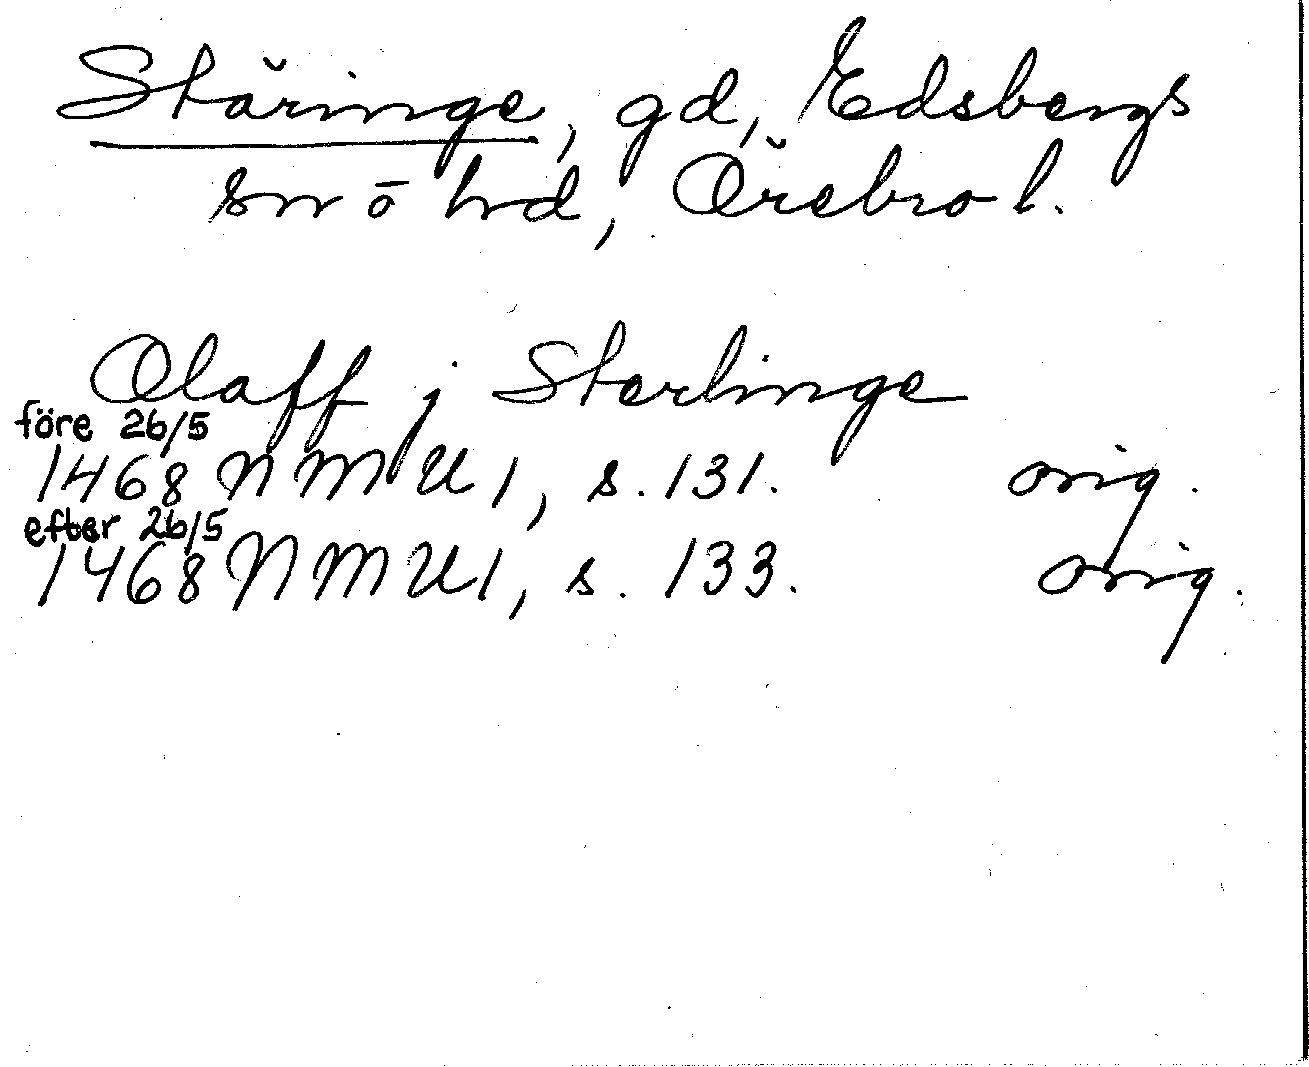 Stäringe, gd, Edsbergs
sn o hd, Örebro l.
Olaff j Sterlinge
före 26/5
1468 NMU 1, s. 131. orig.
efter 26/5
1468 NMU 1, s. 133. orig.